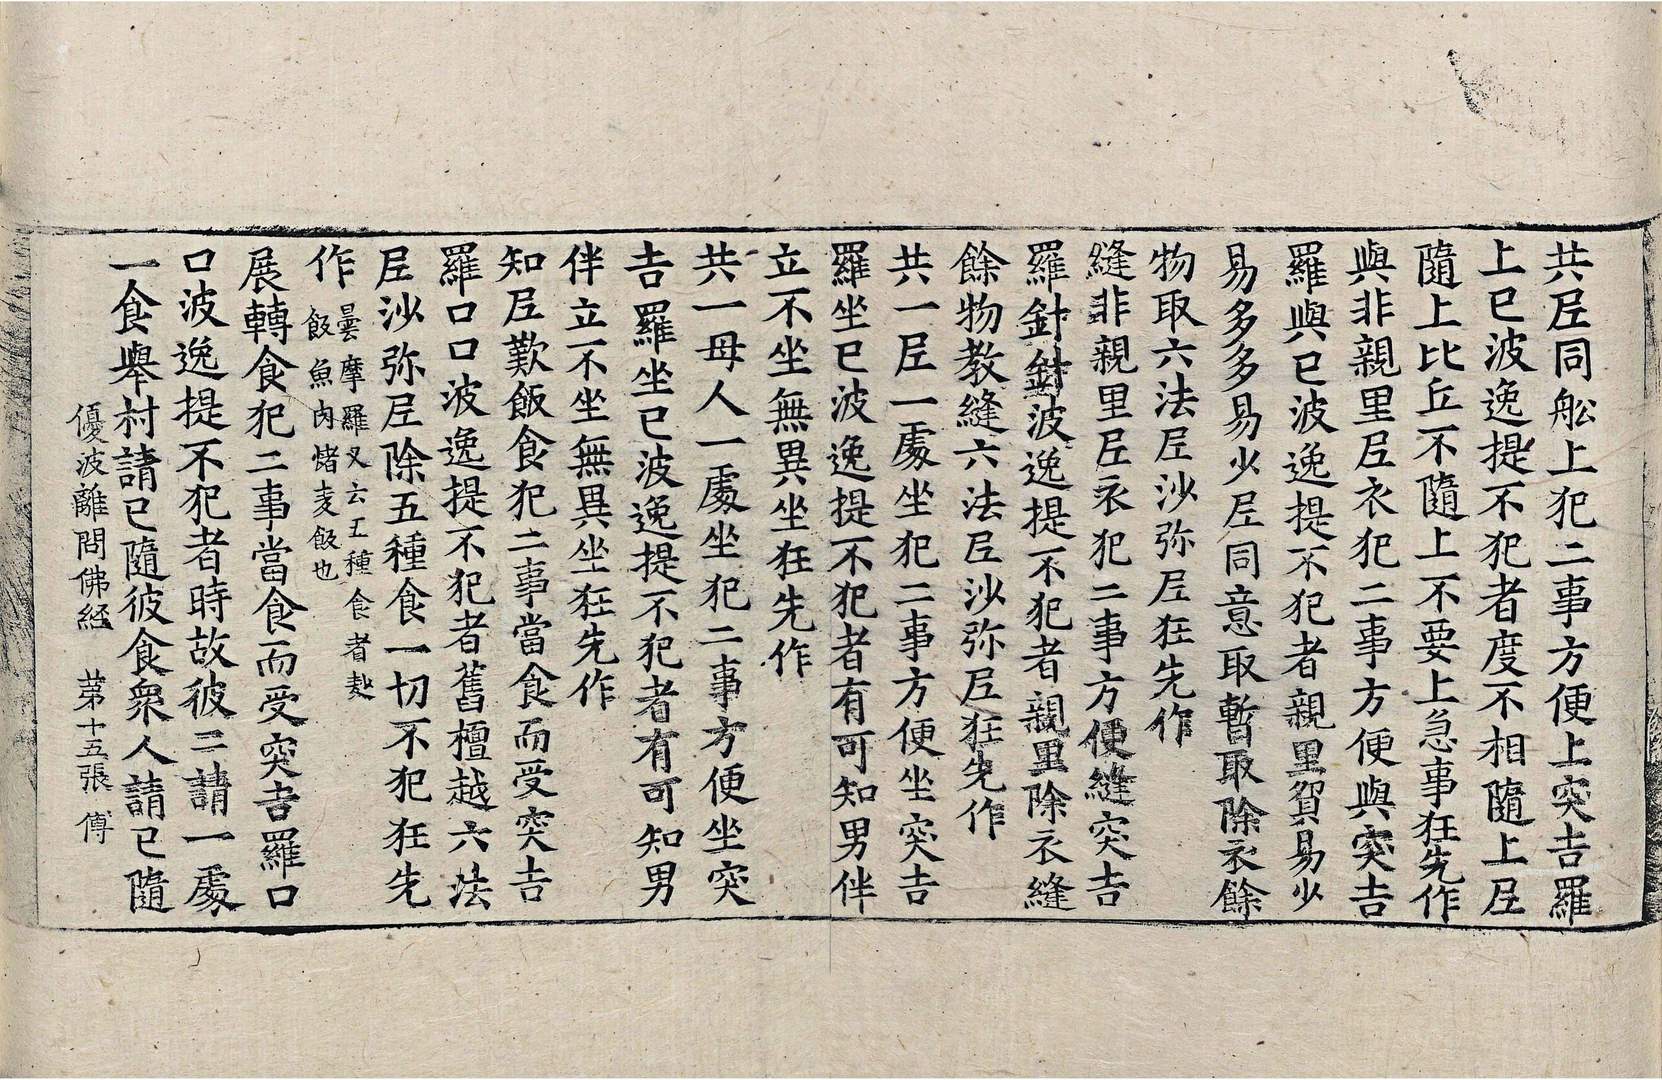 共尼同舩上犯二事方便上突吉羅
上已波逸提不犯者度不相隨上尼
隨上比丘不隨上不要上急事狂先作
與非親里尼衣犯二事方便與突吉
羅與已波逸提不犯者親里貿易少
易多多易少尼同意取暫取除衣餘
物取六法尼沙弥尼狂先作
縫非親里尼衣犯二事方便縫突吉
羅針針波逸提不犯者親里除衣縫
餘物教縫六法尼沙弥尼狂先作
共一尼一處坐犯二事方便坐突吉
羅坐已波逸提不犯者有可知男伴
立不坐無異坐狂先作
共一母人一處坐犯二事方便坐突
吉羅坐已波逸提不犯者有可知男
伴立不坐無異坐狂先作
知尼歎飯食犯二事當食而受突吉
羅口口波逸提不犯者舊檀越六法
尼沙弥尼除五種食一切不犯狂先
作
曇摩羅叉云五種食者麨
飯魚肉䊩麦飯也
展轉食犯二事當食而受突吉羅口
口波逸提不犯者時故彼二請一處
一食舉村請已隨彼食衆人請已隨
優波離問佛經 苐十五張 傅